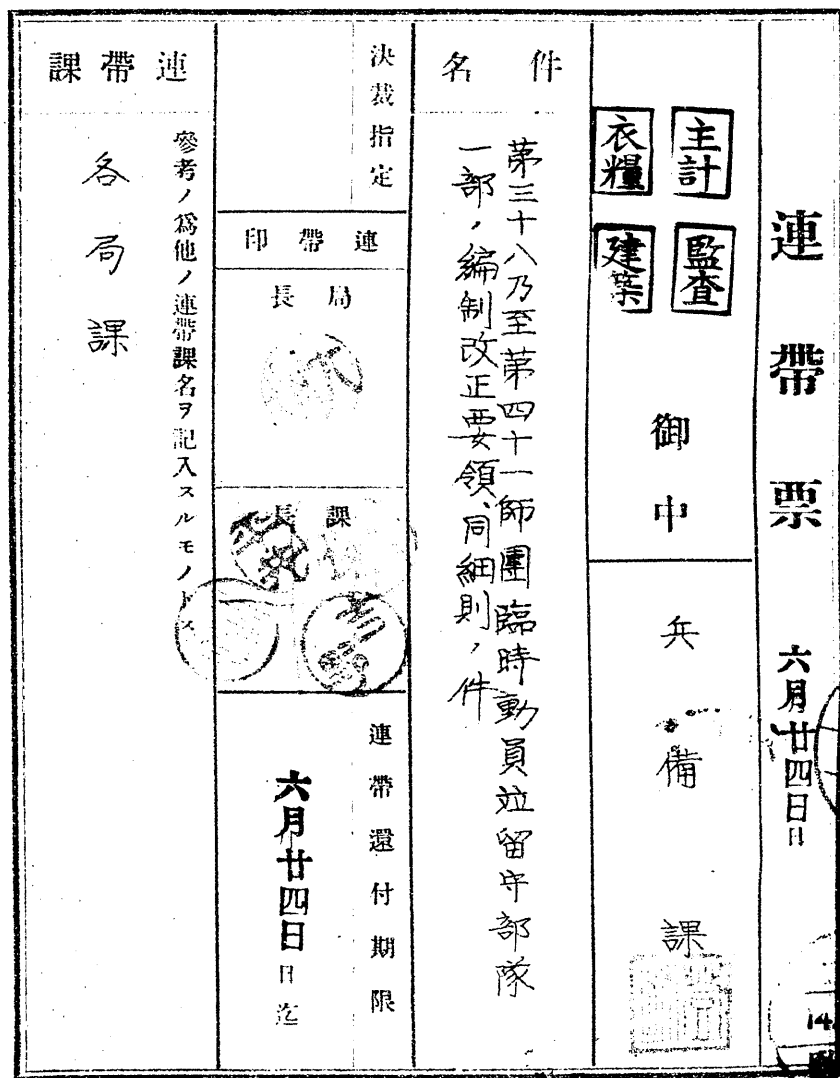 連帶票
六月廿四日日
主計
監査
衣糧
建築
御中
兵備課
件名
第三十八乃至第四十一師團臨時動員竝留守部隊
一部ノ編制改正要領、同細則ノ件
決裁指定
連帶印
局長
課長
連帶還付期限
六月廿四日日迄
連帶課
參考ノ爲他ノ連帶課名ヲ記入スルモノトス
各局課
14